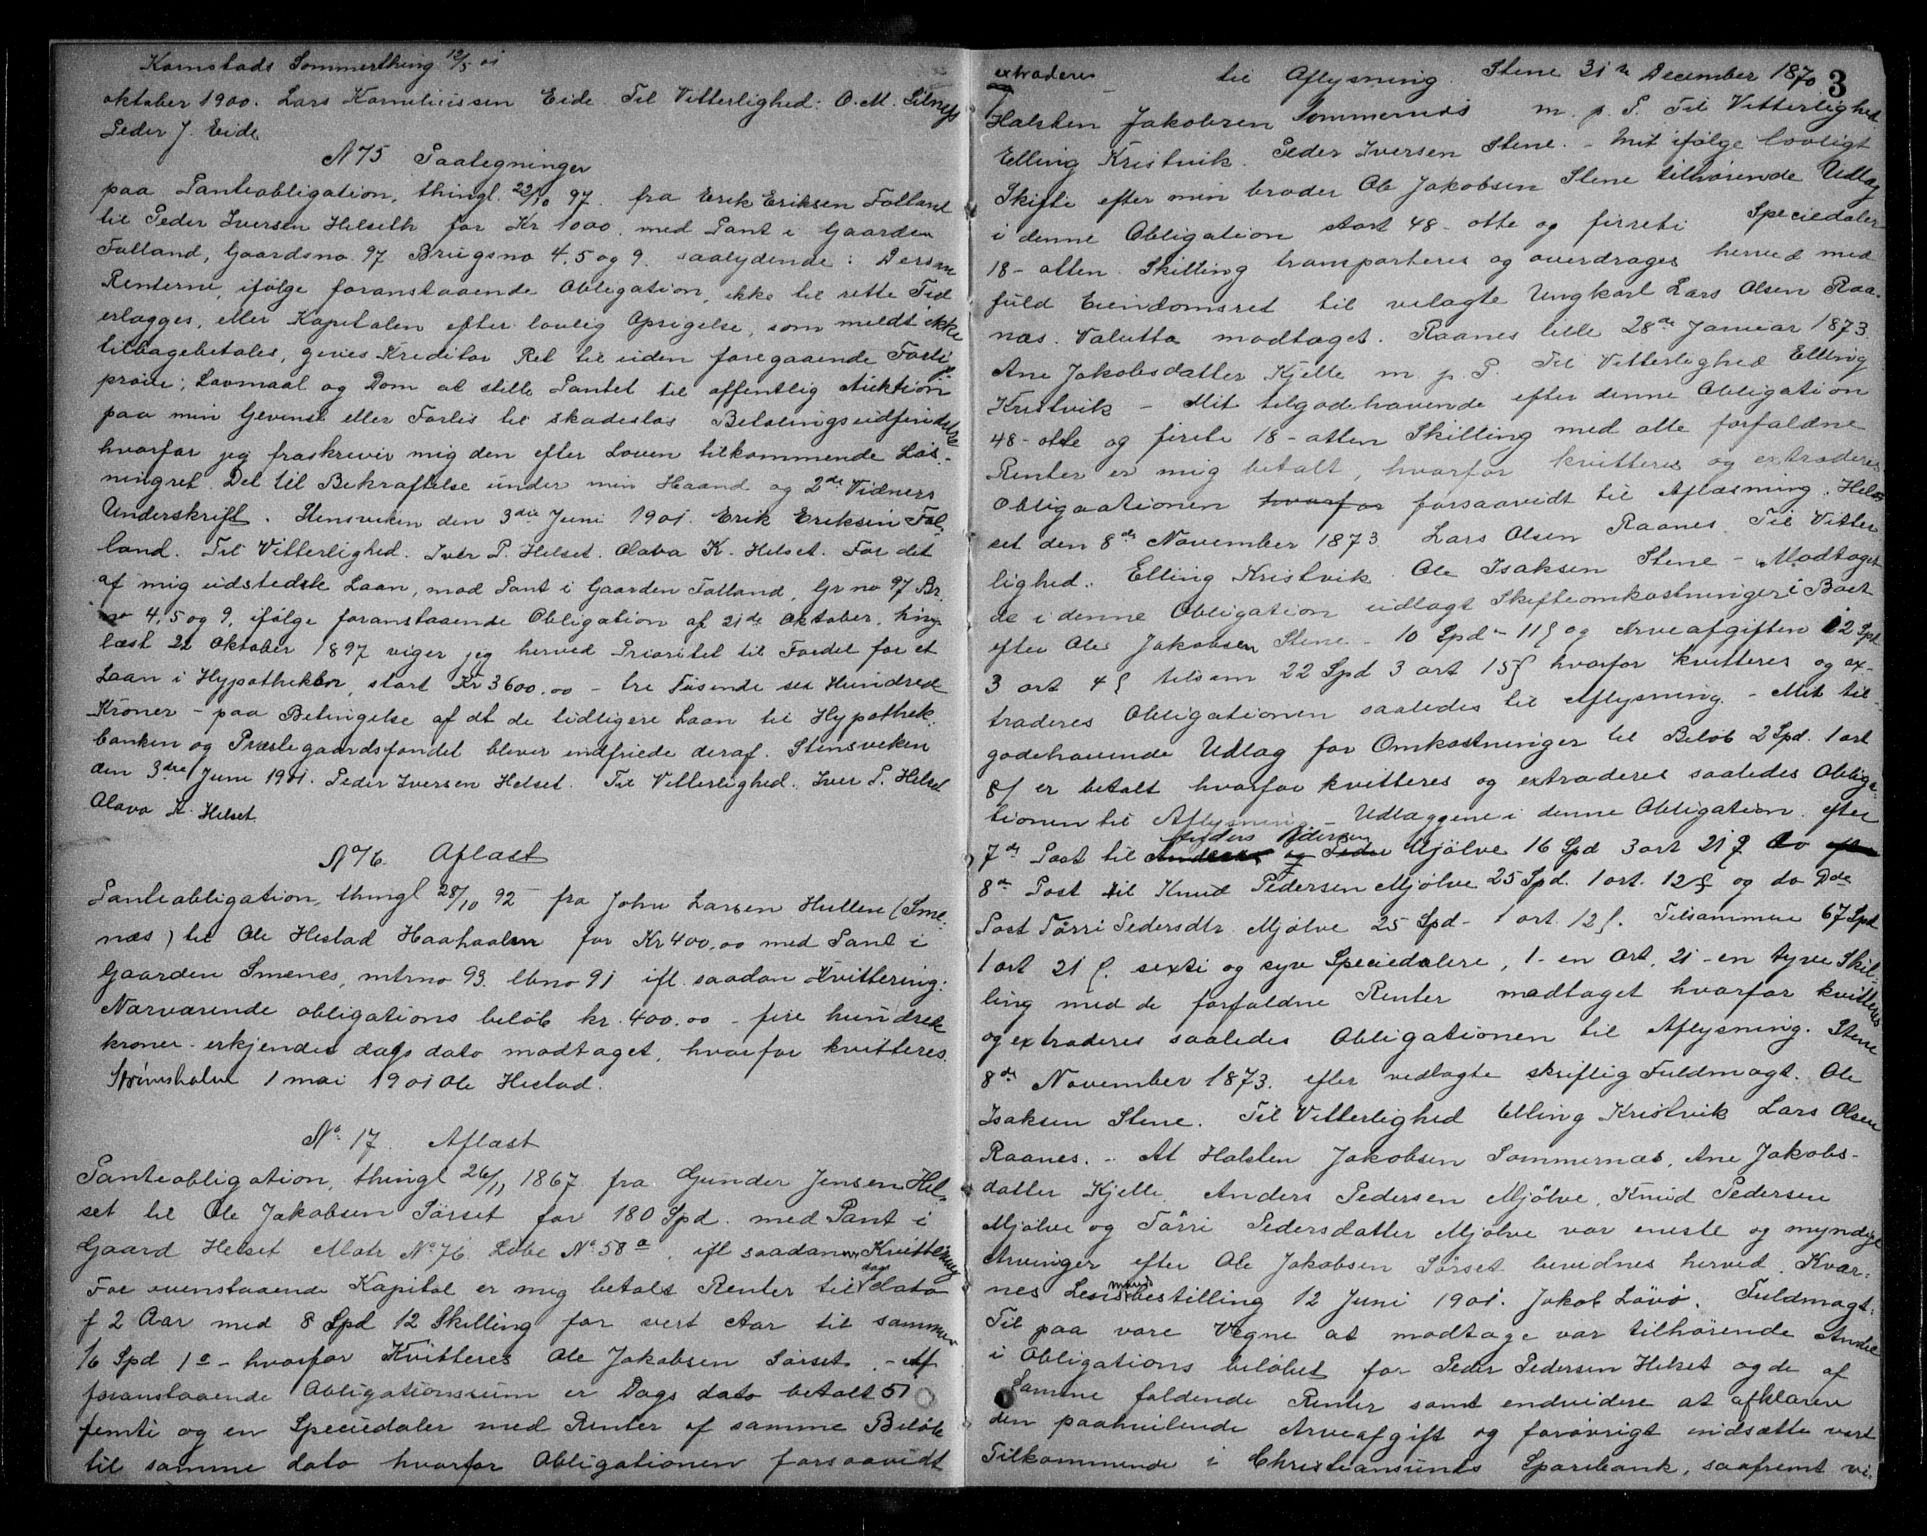 Kornstads Sommerthing 12/5 01
oktober 1900. Lars Kornelius­sen Eide. Til Vitterlighed: O. M. Silnes
Peder J. Eide
N 75 Paategninger
paa Panteobligation, thingl. 22/10 97. fra Erik Eriksen Folland
til Peder Iversen Helseth for Kr 1000 med Pant i Gaarden
Folland, Gaardsno. 97 Brugsno 4, 5 og 9. saalydende: Dersom
Renterne, ifølge foranstaaende Obligation, ikke til rette Tid
erlægges, eller Kapitalen efter lovlig Opsigelse, som meldt ikke
tilbagebetales, gives Kreditor Ret til uden foregaaende Forligs
prøve; Lovmaal og Dom at stille Pantet til offentlig Auktion
paa min Gevinst eller Forlis til skadesløs Betalingsudfindelse
hvorfor jeg fraskrever mig den efter Loven tilkommende Løs-
ningret. Det til Bekræftelse under min Haand og 2de Vidners
Underskrift. Stensviken den 3die Juni 1901. Erik Eriksen Fol-
land. Til Vitterlighed. Iver P. Helset. Olava K. Helset. For det
af mig udstedste Laan, mod Pant i Gaarden Folland, Gr no 97 Br.
no 4, 5 og 9, ifølge foranstaaende Obligation af 21de Oktober, thing
læst 22 Oktober 1897 viger jeg herved Prioritet til Fordel for et
Laan i Hypotheken, stort Kr 3600,00 - tre Tusende sex Hundrede
Kroner - paa Betingelse af at de tidligere Laan til Hypothek.
banken og Præstegaardsfondet bliver indfriede deraf. Stensveken
den 3die Juni 1901. Peder Iversen Helset. Til Vitterlighed. Iver P. Helset
Olava K. Helset.
N 76. Aflæst
Panteobligation, thingl 28/10 92 - fra John Larsen Hullere (Sme-
næs) til Ole Hestad Haaholm for Kr 400,00 med Pant i
Gaarden Smenes, mtrno 93. lbno 91 ifl. saadan Kvittering:
Nærværende obligations beløb kr. 400.00 - fire hundrede
kroner - erkjendes dags dato modtaget, hvorfor kvitteres.
Strømsholm 1 mai 1901 Ole Hestad.
No. 17. Aflæst
Panteobligation, thingl 26/11 1867 fra Gunder Jensen Hel-
set til Ole Jakobsen Sørset for 180 Spd. med Pant i
Gaard Helset Matr No 76 Løbe No 58 a, ifl saadanne Kvittering
For ovenstaaende Kapital er mig betalt Renter til dags dato
f 2 Aar med 8 Spd 12 Skilling for vert Aar til sammen
16 Spd 1 o - hvorfor Kvitteres Ole Jakobsen Sørset. - Af
foranstaaende Obligationssum er Dags dato betalt 51
femti og en Speciedaler med Renter af samme Beløb
til samme dato hvorfor Obligationen forsaavidt
3
extraderes til Aflysning. Stene 31te December 1870.
Halsten Jakobsen Sommernæs m. p. P. Til Vitterlighed
Elling Kristvik. Peder Iversen Stene. - Mit ifølge lovligt
Skifte efter min broder Ole Jakobsen Stene tilhørende Udlæg
i denne Obligation stort 48 - otte og firreti Speciedaler
18 - atten Skilling transporteres og overdrages herved med
fuld Eiendomsret til velagte Ungkarl Lars Olsen Raa-
næs. Valutta modtaget. Raanes lille 28de Januar 1873.
Ane Jakobsdatter Kjelle m p. P. Til Vitterlighed Elling
Kristvik - Mit tilgodehavende efter denne Obligation
48 - otte og firete 18 - atten Skilling med alle forfaldne
Renter er mig betalt, hvorfor kvitteres og extraderes
Obligaationen hvorfor forsaavidt til Aflæsning. Hel-
set den 8de November 1873. Lars Olsen Raanes. Til Vitter
lighed. Elling Kristvik. Ole Isaksen Stene - Modtaget
de i denne Obligation udlagt Skifteomkostninger i Boet
efter Ole Jakobsen Stene - 10 Spd - 11 ſ og Arveafgiften 12 Spd
3 ort 4 ſ tilsam 22 Spd 3 ort 15 ſ hvorfor kvitteres og ex-
traderes Obligationen saaledes til Aflysning. - Mit til
godehavende Udlæg for Omkostninger til Beløb 2 Spd. 1 ort
8 ſ er betalt hvorfor kvitteres og extraderes saaledes Obliga-
tionen til Aflysning - Udlæggene i denne Obligation efter
7de Post til Anders Pedersen Mjølve 16 Spd 3 ort 21 ſ do
8de Post til Knud Pedersen Mjølve 25 Spd. 1 ort. 12 ſ og do 9de
Post Tørri Pedersdtr. Mjølve 25 Spd - 1 ort 12 ſ. Tilsammen 67 Spd
1 ort 21 ſ. sexti og syv Speciedalere, 1 - en Ort, 21 - en tyve Skil-
ling med de forfaldne Renter modtaget hvorfor kvitteres
og extraderes saaledes Obligationen til Aflysning. Stene
8de November 1873. efter vedlagte skriftlig Fuldmagt. Ole
Isaksen Stene. Til Vitterlighed Elling Kristvik Lars Olsen
Raanes. - At Halsten Jakobsen Sommernæs, Ane Jakobs-
datter Kjelle, Anders Pedersen Mjølve, Knud Pedersen
Mjølve og Tørri Pedersdatter Mjølve var eneste og myndige
Arvinger efter Ole Jakobsen Sørset bevidnes herved. Kvær-
nes Lensmandsbestilling 12 Juni 1901. Jakob Løvø. Fuldmagt:
Til paa vore Vegne at modtage vor tilhørende Andel
i Obligations beløbet for Peder Pedersen Helset og de af
Samme faldende Renter samt endvidere at afklarere
den paahvilende Arveafgift og forøvrigt indsætte vort
Tilkommende i Christiansunds Sparebank, saafremt vi.